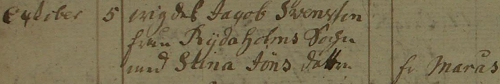 October 5 wigdes Jacob Svensson
från Rydaholms Sochn
med Stina Jöns dotter fr Marås